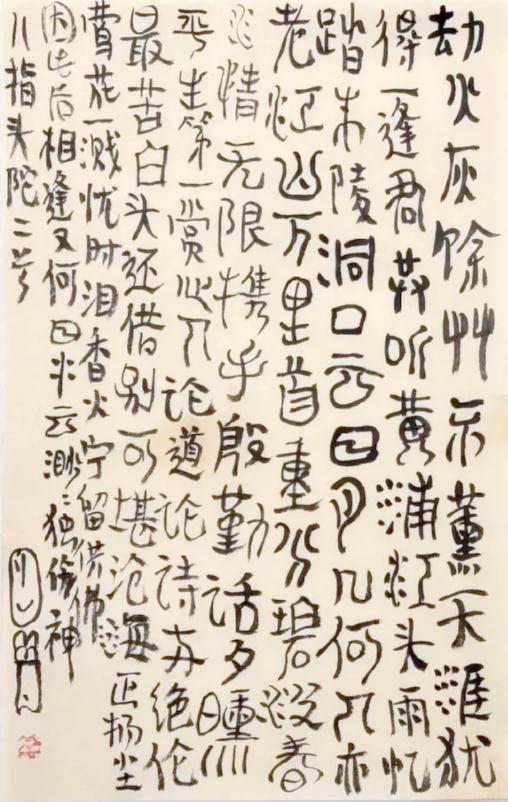 劫火灰馀艸不薰天涯犹
得一逢君共听黄浦江头雨忆
踏朱陵洞口云日月几何人亦
老江山万里首重分碧波春
水情无限携手殷勤话夕曛
平生第一赏心人论道论诗两绝伦
最苦白头还借别可堪沧海正扬尘
莺花一溅忧时泪香火宁留供佛
因此后相逢又何日水云渺渺独伤神
八指头陀二首